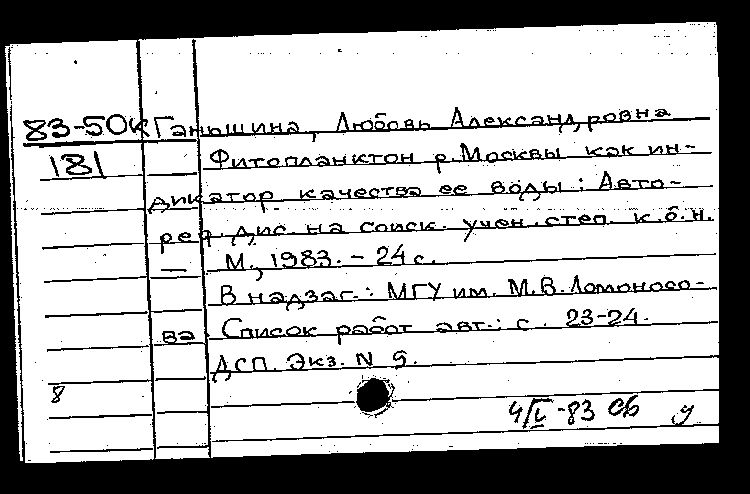 83-50К Ганьшина, Любовь Александровна
181 Фитопланктон р.Москвы как ин-
дикатор качества ее воды: Авто-
реф. дис. на соиск. учен. степ. к.б.н.
— М., 1983. - 24 с.
В надзаг.: МГУ им. М.В.Ломоносо-
ва. Список работ авт.: с. 23-24.
ДСП. Экз. N 5.
8
4/V -83